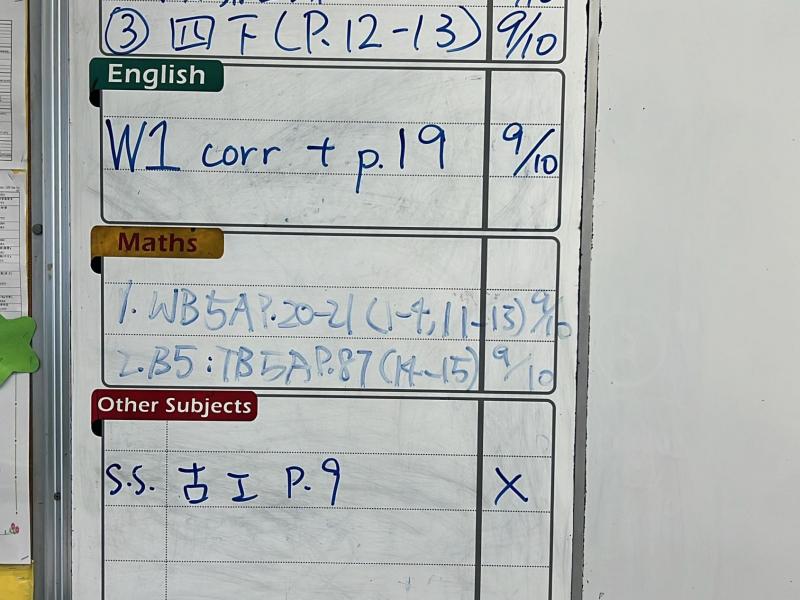 ③ 四下(P.12-13) 9/10
English
W1 corr + p.19 9/10
Maths
1. WB5A P.20-21 (1-4, 11-13) 9/10
2. B5 : TB5A P.87 (14-15) 9/10
Other Subjects
S.S. 古工 P.9 X